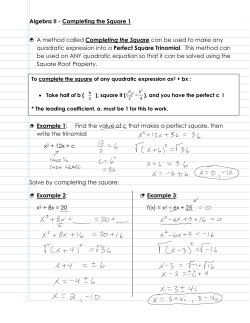 Algebra II - Completing the Square 1
A method called Completing the Square can be used to make any
quadratic expression into a Perfect Square Trinomial. This method can
be used on ANY quadratic equation so that it can be solved using the
Square Root Property.
To complete the square of any quadratic expression ax² + bx :
• Take half of b ( b/2 ), square it
, and you have the perfect c !
* The leading coefficient, a, must be 1 for this to work.
Example 1: Find the value of c that makes a perfect square, then
write the trinomial
x² + 12x + c
12/2 = 6
6² = 36
TAKE 1/2
THEN SQUARE
x² + 12x + 36 = 36
√(x + 6)² = √36
x + 6 = ± 6
x = -6 ± 6
x = 0, -12
Solve by completing the square:
Example 2:
x² + 8x = 20
x² + 8x = 20 +
x² + 8x + 16 = 20 + 16
√(x + 4)² = √36
x + 4 = ± 6
x = -4 ± 6
x = 2, -10
Example 3:
f(x) = x² – 6x + 25 = 0
x² - 6x + 9 + 16 = 0
x² - 6x + 9 = -16
√(x - 3)² = √-16
x - 3 = ± √-16
x - 3 = ± i·4
x = 3 ± 4i
x = 3 + 4i, 3 - 4i